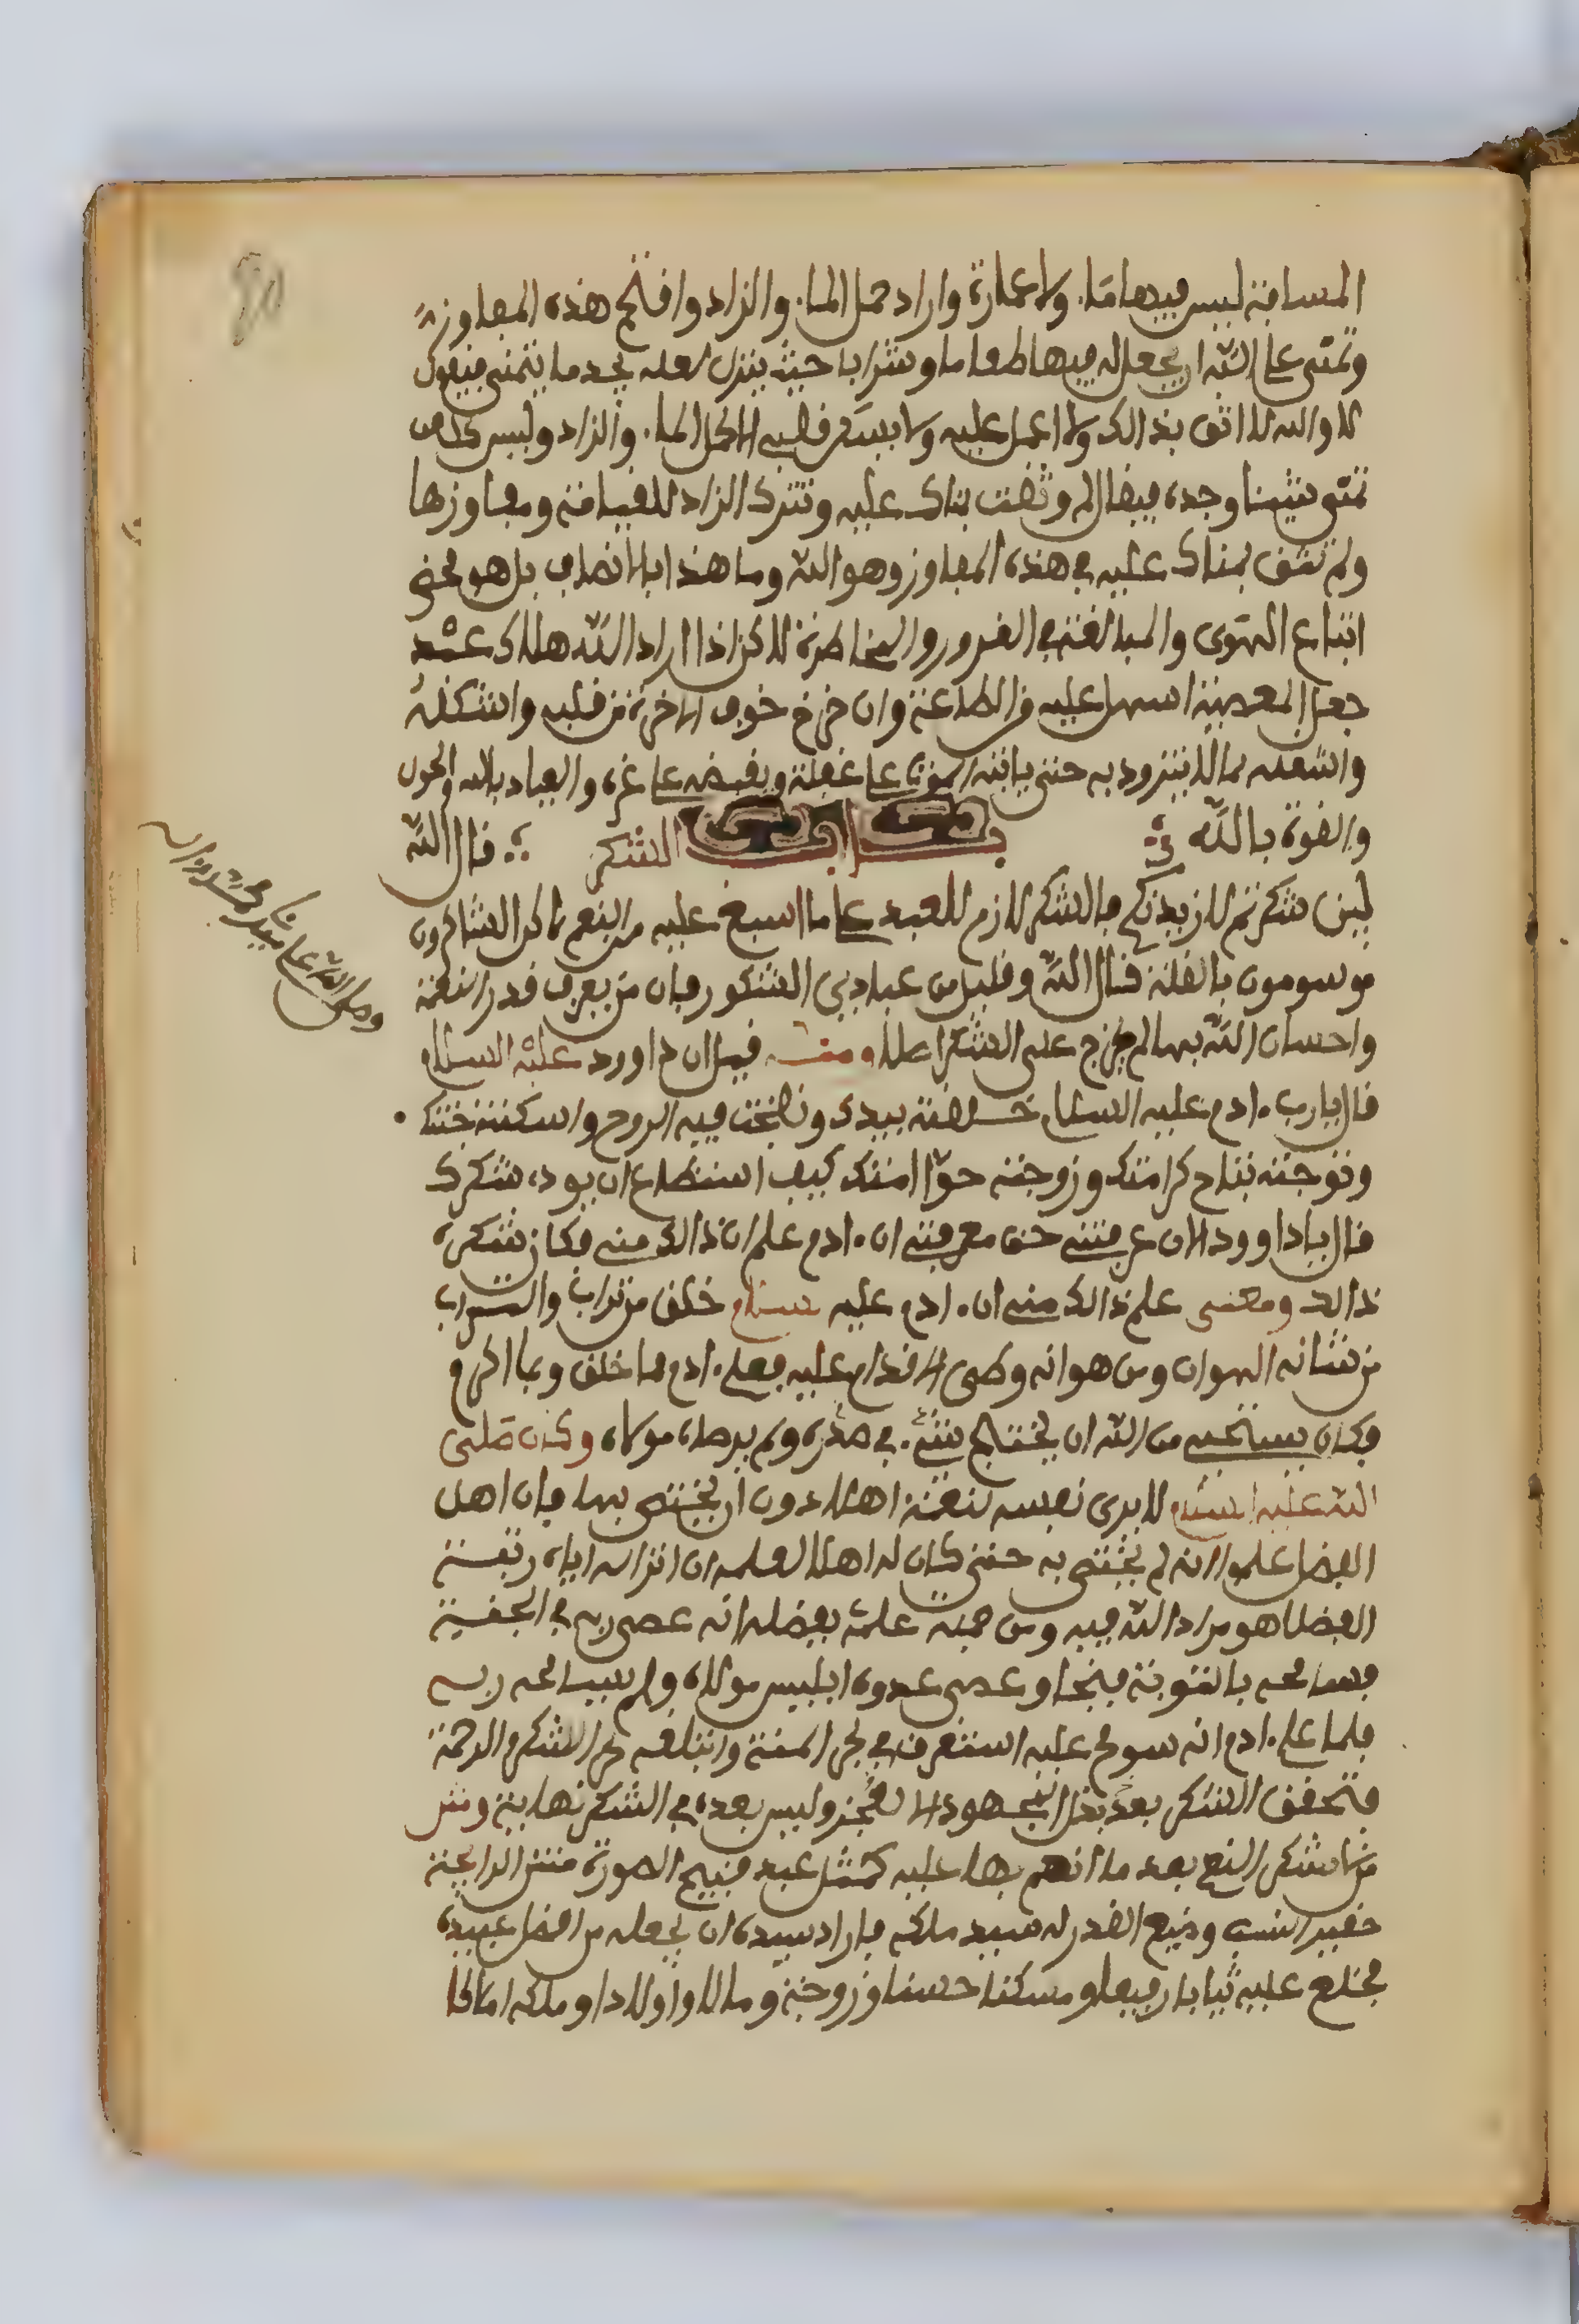 المسافة ليس فيها ماء ولا عمارة واراد حمل الماء والزاد وافتح هذه المفاوز
وتمنى على الله ان يجعل له فيها طعاما وشرابا حيث ينزل لعله يجد ما يتمنى فيقول
لا والله لا اثق بذالك ولا اعمل عليه ولا يسكن قلبي الا لحمل الماء والزاد وليس كل من
تمنى شيئا وجده فيقال له وثقت بمناك عليه وتترك الزاد للقيامة ومفاوزها
ولم تثق بمناك عليه في هذه المفاوز وهو الله وما هذا بالانصاف بل هو محض
اتباع الهوى والمبالغة في الغرور والمخاطرة لاكن اذا اراد الله هلاك عبد
جعل المعصية اسهل عليه من الطاعة وان خرج خوف الاخرة من قلبه واشكله
واشغله بما لا يتزود به حتى ياتيه الموت على غفلة ويقبضه على غرة والعياذ بالله والحول
والقوة بالله باب الشكر قال الله
لين شكرتم لازيدنكم فالشكر لازم للعبد على ما اسبغ عليه من النعم لاكن الشاكرون
موسومون بالقلة قال الله وقليل من عبادي الشكور فان من يعرف قدر النعمة
واحسان الله بها لم يخرج على الشكر اصلا ومنه قيل ان داوود عليه السلام
قال يا رب ءادم عليه السلام خلقته بيدك ونفخت فيه الروح واسكنته جنتك
وتوجته بتاج كرامتك وزوجته حوا امتك كيف استطاع ان يود شكرك
قال يا داوود الان عرفتني حق معرفتي ان ءادم علم ان ذالك مني فكان شكره
ذالك ومعنى علم ذالك مني ان ءادم عليه السلام خلق من تراب والتراب
من شانه الهوان ومن هوانه وطى الاقدام عليه فعلم ءادم مما خلق وبما اكرم
فكان يستحي من الله ان يختلج شيء في صدره ولم يرضاه مولاه وكان صلى
الله عليه السلام لا يرى نفسه لنعمة اهلا دون ان يختص بها فان اهل
الفضل علموا انه لم يختص به حتى كان له اهلا لعلمه ان انزاله اياه رتبة
الفضل هو مراد الله فيه ومن جهة علمه بفضله انه عصى ربه في الجنة
فسامحه بالتوبة فنجا وعصى عدوه ابليس مولاه ولم يسامحه ربه
فلما علم ءادم انه سومح عليه استغرق في بحر المنة وابتلعه بحر الشكر والرحمة
فتحقق الشكر بعد بذل المجهود الا لعجز وليس بعده في الشكر نهاية ومثل
من شكر النعم بعد ما انعم بها عليه كمثل عبد قبيح الصورة منتن الرايحة
حقير النسب وضيع القدر له سيد ملكه فاراد سيده ان يجعله من افضل عبيده
فخلع عليه ثيابا رفيعا ومسكنا حسنا وزوجة ومالا واولادا وملكه املاكا
وصلى الله على سيدنا محمد